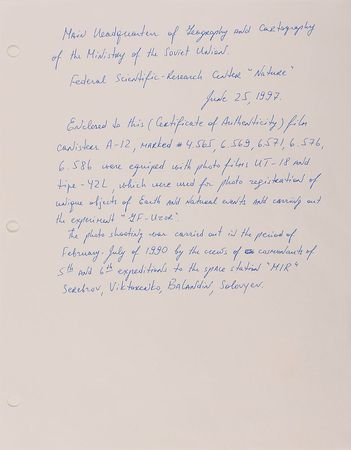 Main Headquarter of Geography and Cartography
of the Ministry of the Soviet Union.
Federal Scientific-Research Center "Nature"
June 25, 1997.
Enclosed to this (Certificate of Authenticity) film
canisteer A-12, marked # 4.565, 6.569, 6.571, 6.576,
6.586 were equiped with photo films UT-18 and
tipe-42L, which were used for photo registration of
unique objects of Earth and natural events and carring out
the experiment
The photo shooting was carried out in the period of
February-July of 1990 by the crews of cosmonauts of
5th and 6th expeditions to the space station "MIR"
Serebrov, Viktorenko, Balandin, Solovyev.